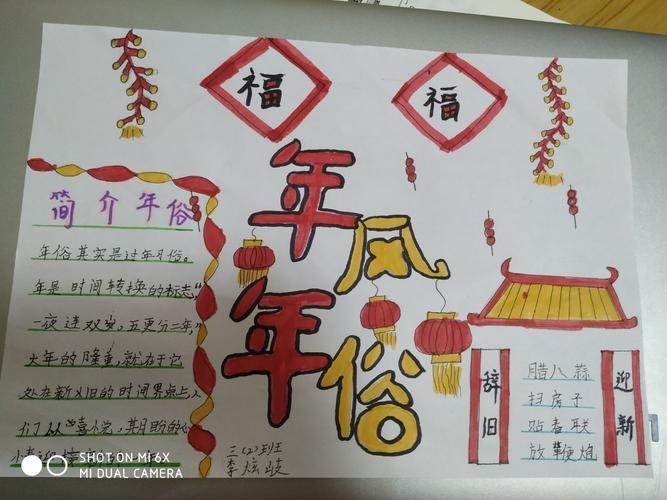 福
福
年风
年俗
简介年俗
年俗其实是过年习俗。
年是时间转换的标志,“
一夜连双岁,五更分二年,”
大年的隆重,就在于它
处在新旧的时间界点上,
们从“喜小说,其月盼的心
三(2)班
李炫歧
辞旧
迎新
腊八蒜
扫房子
贴春联
放鞭炮
SHOT ON MI 6X
MI DUAL CAMERA